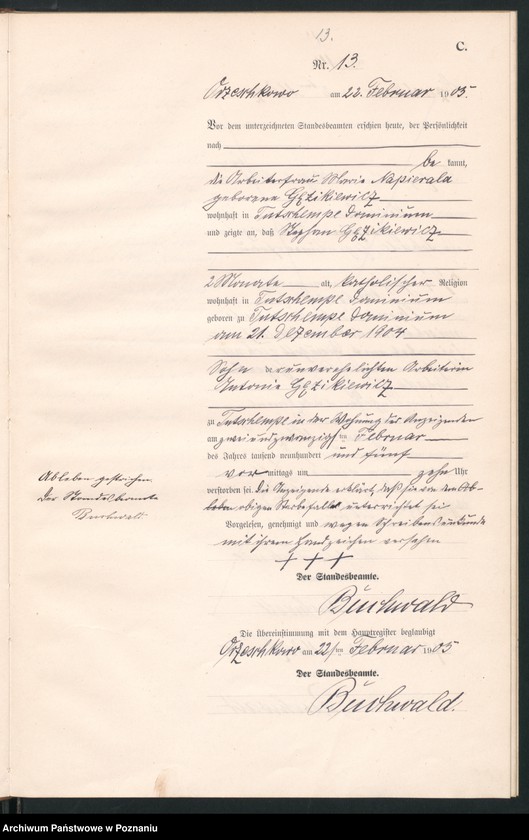 13.
C.
Nr. 13.
Orzeschkowo am 22. Februar 1905.
Vor dem unterzeichneten Standesbeamten erschien heute, der Persönlichkeit
nach
be kannt,
die Arbeiterfrau Marie Napierala
geborene
wohnhaft in Tutschempe Dominium
und zeigte an, daß Stephan
2 Monate alt, katholischer Religion
wohnhaft in Tutschempe Dominium
geboren zu Tutschempe Dominium
am 21. Dezember 1904
Sohn der unverehelichten Arbeiterin
Antonie
zu Tutschempe in der Wohnung der Anzeigenden
am zweiundzwanzigsten Februar
des Jahres tausend neunhundert und fünf
vor mittags um zehn Uhr
verstorben sei. Die Anzeigende erklärt, daß sie von dem Ab-
leben obigen Sterbefalles unterrichtet sei
Vorgelesen, genehmigt und wegen Schreibensunkunde
mit ihrem Handzeichen versehen
+++
Ableben gestrichen.
Der Standesbeamte
Buchwald
Der Standesbeamte.
Buchwald
Die Übereinstimmung mit dem Hauptregister beglaubigt
Orzeschkowo am 22ten Februar 1905
Der Standesbeamte.
Buchwald.
Archiwum Państwowe w Poznaniu